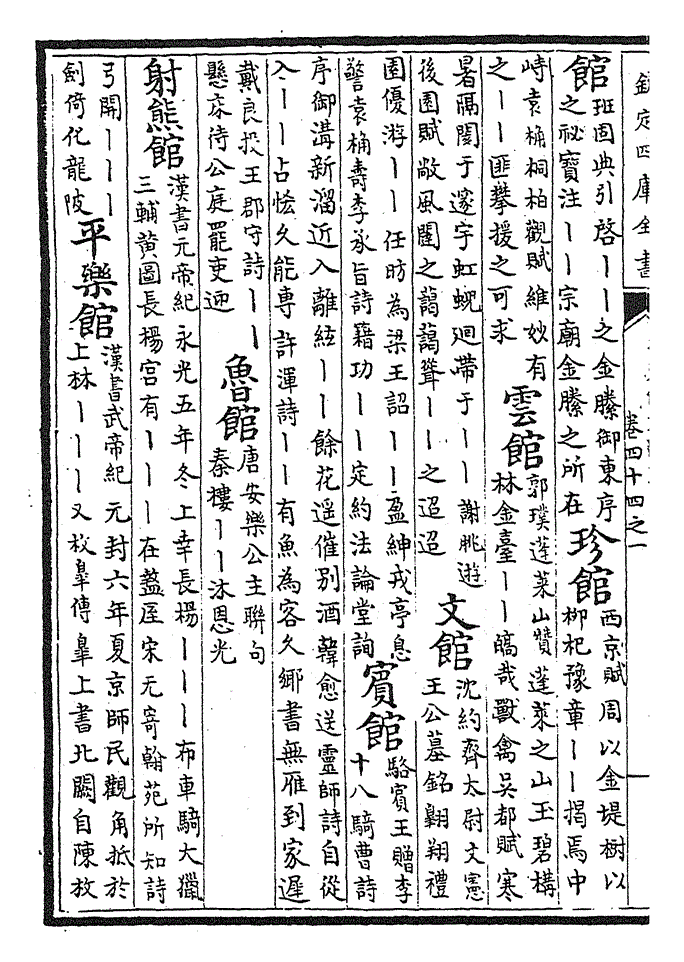 欽定四庫全書
卷四十四之一
館
班固典引啓丨丨之金縢御東序
之祕寶注丨丨宗廟金縢之所在
珍館
西京賦周以金堤樹以
柳杞豫章丨丨揭焉中
峙袁桷桐柏觀賦維妙有
之丨丨匪攀援之可求
雲館
郭璞蓬萊山贊蓬萊之山玉碧構
林金臺丨丨皜哉獸禽吳都賦寒
暑隔閡于邃宇虹蜺迴帶于丨丨謝朓遊
後園賦敞風閨之藹藹聳丨丨之迢迢
文館
沈約齊太尉文憲
王公墓銘翺翔禮
園優游丨丨任昉為梁王詔丨丨盈紳戎亭息
警袁桷壽李承旨詩藉功丨丨定約法論堂詢
賓館
駱賓王贈李
十八騎曹詩
序御溝新溜近入離絃丨丨餘花遥催别酒韓愈送靈師詩自從
入丨丨占恡久能專許渾詩丨丨有魚為客久鄉書無雁到家遲
戴良投王郡守詩丨丨
懸床待公庭罷吏迎
魯館
唐安樂公主聯句
秦樓丨丨沐恩光
射熊館
漢書元帝紀永光五年冬上幸長楊丨丨丨布車騎大獵
三輔黄圖長楊宫有丨丨丨在盩厔宋无寄翰苑所知詩
弓開丨丨丨
劍倚化龍陂
平樂館
漢書武帝紀元封六年夏京師民觀角抵於
上林丨丨丨又枚臯傳臯上書北闕自陳枚